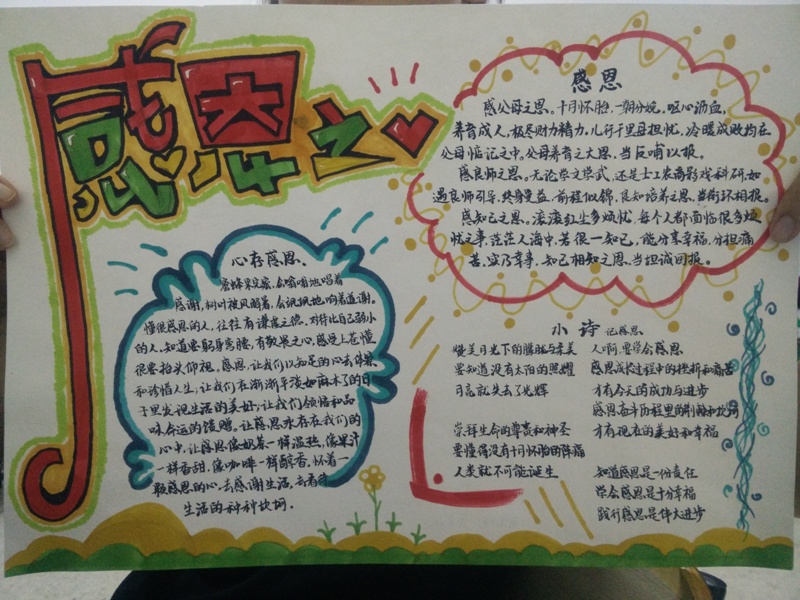 感恩之
心存感恩.
蜜蜂采蜜,会嗡嗡地唱着
感谢,树叶被风吹着,会沙沙地响着道谢。
懂得感恩的人,往往有谦虚之德,对待比自己弱小
的人,知道要躬身弯腰,有敬畏之心,感受上苍懂
得要抬头仰视。感恩,让我们以知足的心去体察
和珍惜人生,让我们在渐渐平淡如麻木了的日
子里发现生活的美好,让我们领悟和品
味命运的馈赠,让感恩永存在我们的
心中,让感恩像奶茶一样温热,像果汁
一样香甜,像咖啡一样醇香,怀着一
颗感恩的心,去感谢生活,去看待
生活的种种坎坷.
感恩
感父母之恩。十月怀胎,一朝分娩,呕心沥血,
养育成人,极尽财力精力,儿行千里母担忧,冷暖成败均在
父母惦记之中。父母养育之大恩,当反哺以报。
感良师之恩。无论学文学武,还是士工农商影戏科研,如
遇良师引导,终身受益,前程似锦,良知培养之恩,当衔环相报。
感知己之恩。滚滚红尘多烦忧,每个人都面临很多烦
忧之事,茫茫人海中,若得一知己,能分享幸福,分担痛
苦,实乃幸事,知己相知之恩,当坦诚回报。
小诗 记感恩
赞美月光下的朦胧与柔美
要知道没有太阳的照耀
月亮就失去了光辉
崇拜生命的尊贵和神圣
要懂得没有十月怀胎的阵痛
人类就不可能诞生
人啊,要学会感恩
感恩成长过程中的挫折和痛苦
才有今天的成功与进步
感恩奋斗历程里的荆棘和坎坷
才有现在的美好和幸福
知道感恩是一份责任
学会感恩是十分幸福
践行感恩是伟大进步